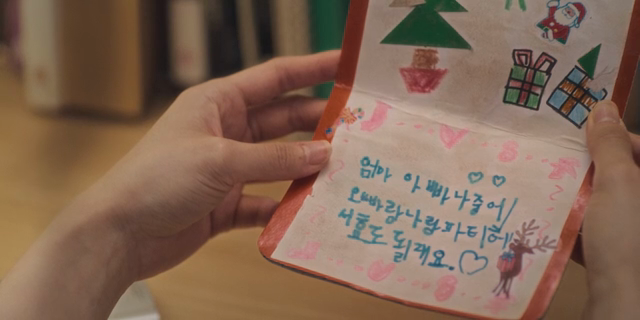 엄마 아빠 나중에
오빠랑 나랑 파티해
서 효도 될게요.